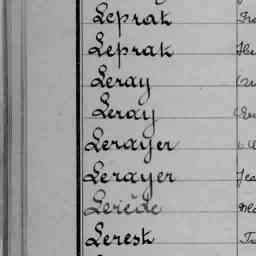 Leprak
Leprak
Leray
Leray
Lerayer
Lerayer
Lerède
Lerest